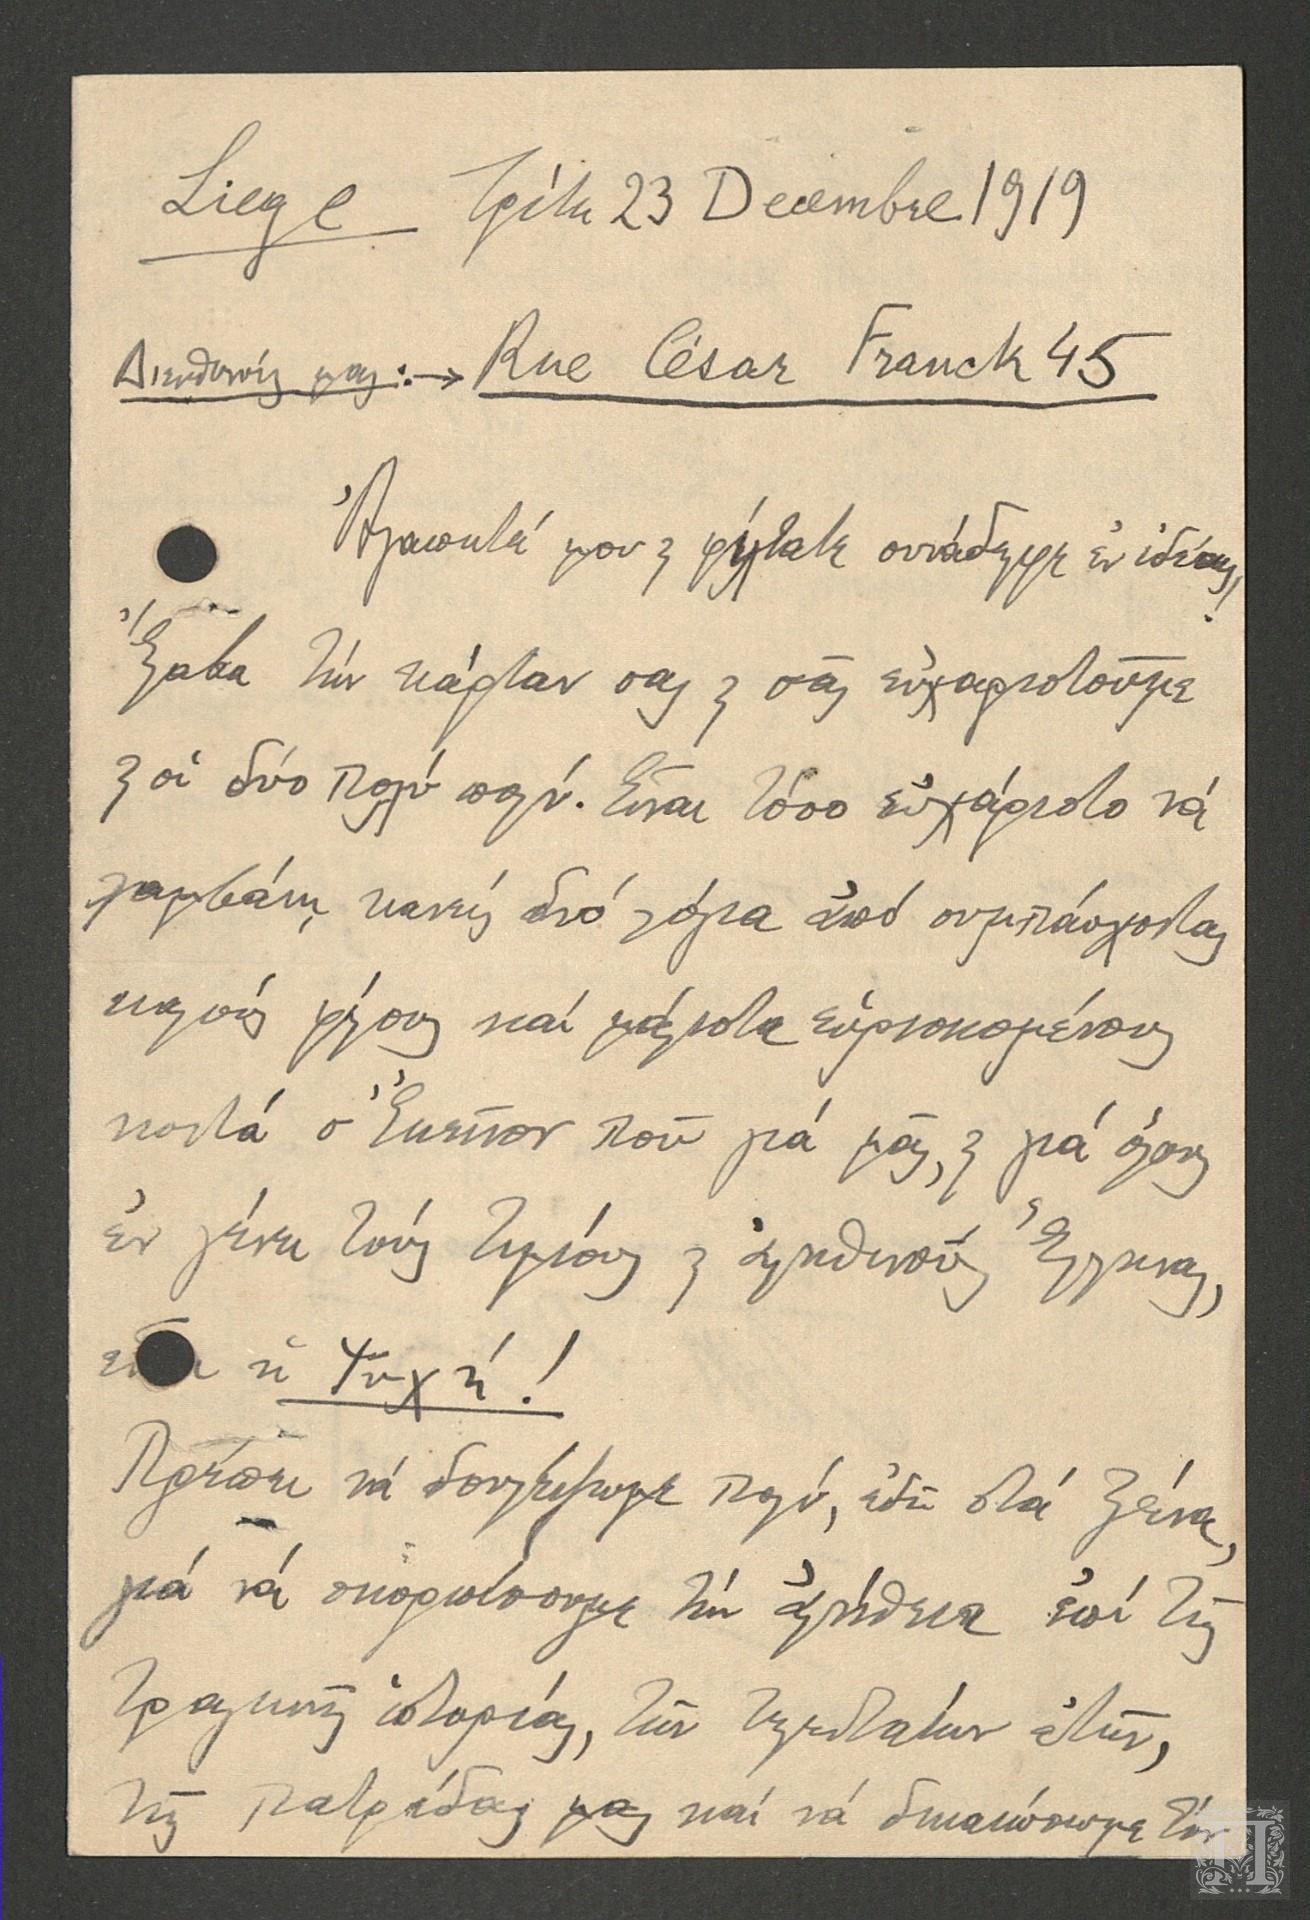 Liege Τρίτη 23 Decembre 1919
Διεύθυνσίς μας: → Rue César Franck 45
Ἀγαπητέ μου ϗ φίλτατε συνάδελφε ἐν ἰδέαις!
Ἔλαβα τήν κάρταν σας ϗ σᾶς εὐχαριστοῦμε
ϗ οἱ δύο πολύ πολύ. Εἶναι τόσο εὐχάριστο νά
λαμβάνῃ κανείς δυό λόγια ἀπό συμπάσχοντας
καλούς φίλους καί μάλιστα εὑρισκομένους
κοντά σ' Ἐκεῖνον ποῦ γιά μᾶς, ϗ γιά ὅλους
ἐν γένει τούς τιμίους ϗ ἀληθινούς Ἕλληνας,
εἶναι ἡ Ψυχή!
Πρέπει νά δουλέψωμε πολύ, ἐδῶ στά ξένα,
γιά νά σκορπίσουμε τήν ἀλήθεια ἐπί τῆς
τραγικῆς ἱστορίας, τῶν τελευταίων ἐτῶν,
τῆς πατρίδας μας καί νά δικαιώσωμε τόν